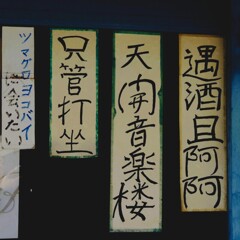 遇酒且阿阿
天開音楽楼
只管打坐
ツマグロヨコバイ
に会いたい